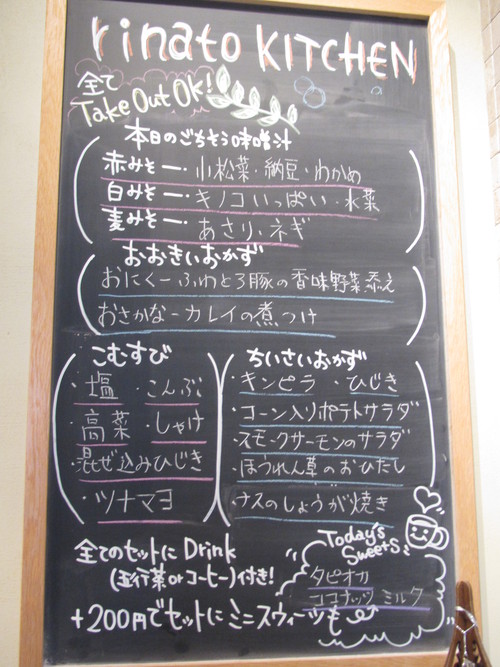 rinato KITCHEN
全て
Take Out OK!
本日のごちそう味噌汁
赤みそ ー・小松菜・納豆・わかめ
白みそ ー・キノコいっぱい・水菜
麦みそ ー・あさり・ネギ
おおきいおかず
おにくーふわとろ豚の香味野菜添え
おさかなーカレイの煮つけ
こむすび
・塩 ・こんぶ
・高菜 ・しゃけ
・混ぜ込みひじき
・ツナマヨ
ちいさいおかず
・キンピラ ・ひじき
・コーン入りポテトサラダ
・スモークサーモンのサラダ
・ほうれん草のおひたし
ナスのしょうが焼き
全てのセットに Drink
(五行茶orコーヒー)付き!
+200円でセットにミニスウィーツも
Today's
Sweets
タピオカ
ココナッツミルク